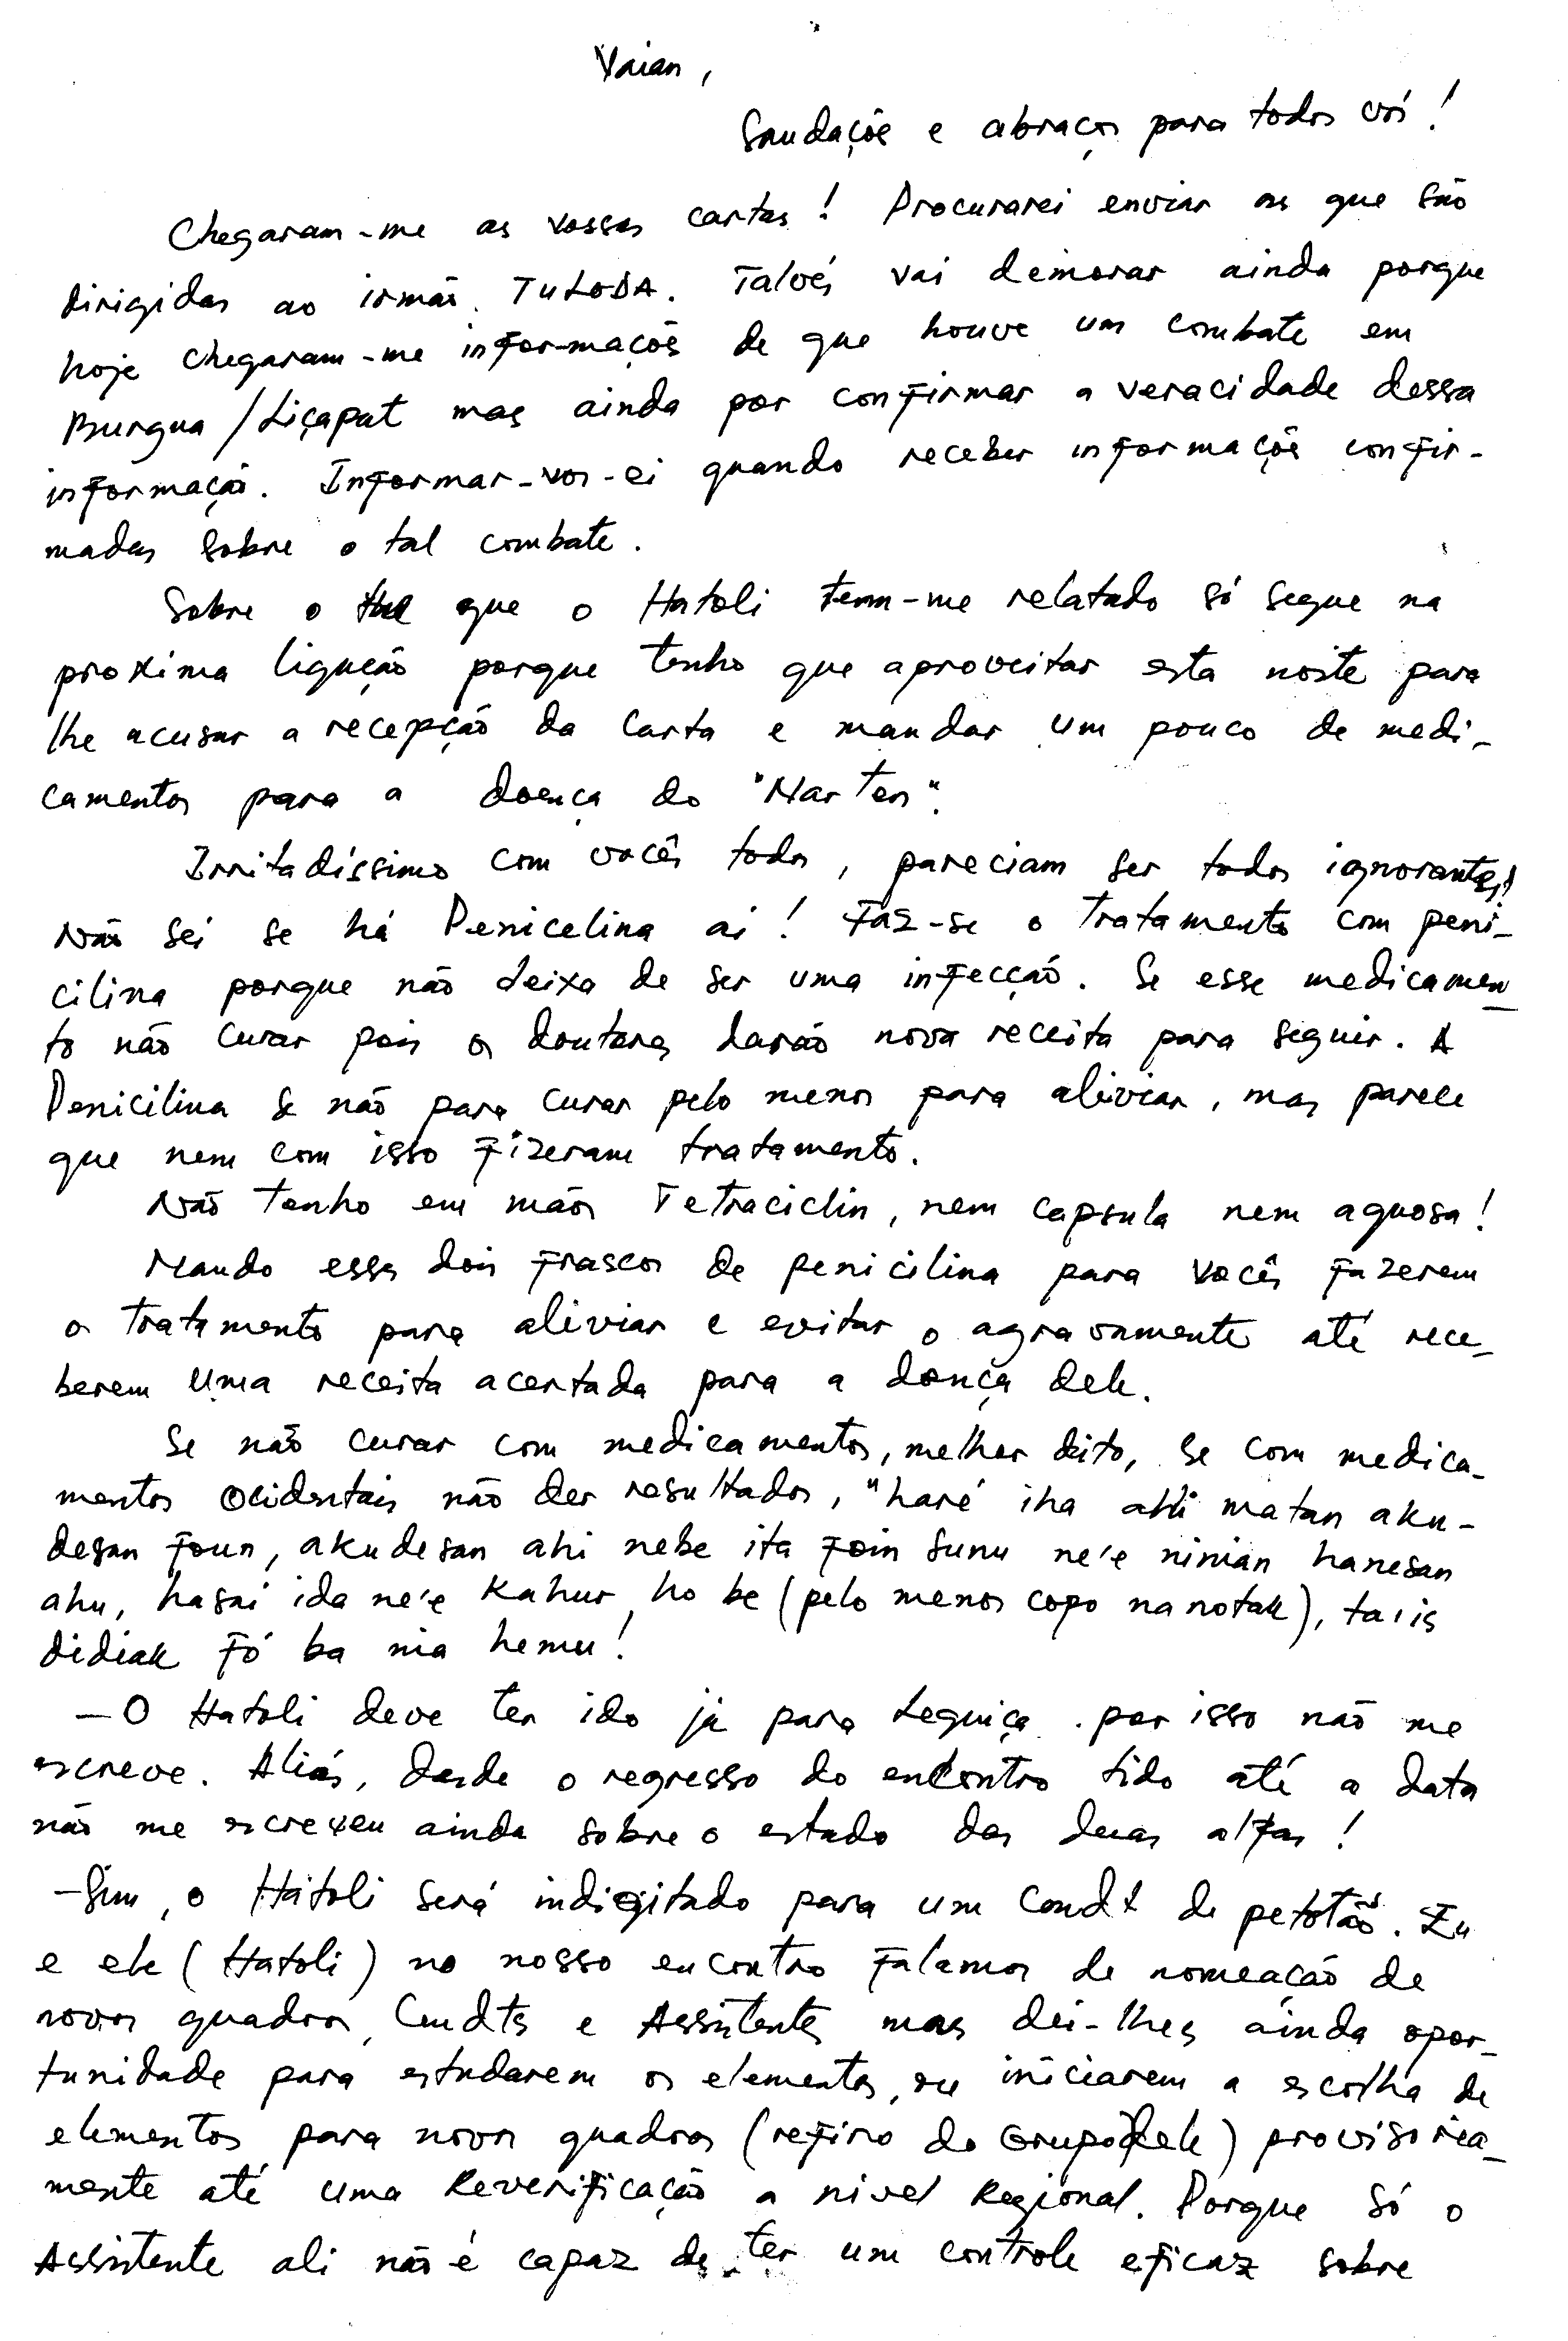 Vaian,
Saudaçõe e abraços para todos vós!
Chegaram-me as vossas cartas! Procurarei enviar as que são
dirigidas ao irmão TULODA. Talvés vai demorar ainda porque
hoje chegaram-me informações de que houve um combate em
Burgua/Liçapat mas ainda por confirmar a veracidade dessa
informação. Informar-vos-ei quando receber informaçõe confir-
madas sobre o tal combate.
Sobre o que o Hatoli tem-me relatado só segue na
proxima ligação porque tenho que aproveitar esta noite para
lhe acusar a recepção da carta e mandar um pouco de medi-
camentos para a doença do "Marten".
Irritadíssimo com vocês todos, pareciam ser todos ignorantes!
Não sei se há Penicelina ai! Faz-se o tratamento com peni-
cilina porque não deixa de ser uma infecção. Se esse medicamen
to não curar pois os doutores darão nova receita para seguir. A
Penicilina se não para curar pelo menos para aliviar, mas parece
que nem com isso fizeram tratamento.
Não tenho em mãos Tetraciclin, nem capsula nem aquosa!
Mando esses dois frascos de penicilina para vocês fazerem
o tratamento para aliviar e evitar o agravamente até rece-
berem uma receita acertada para a donça dele.
Se não curar com medicamentos, melhor dito, se com medica-
mentos ocidentais não der resultados, "haré iha ahi matan aku-
desan foun, akudesan ahi nebe ita foin sunu ne'e ninian hanesan
ahu, hasai ida ne'e kahur ho be (pelo menos copo nanotak), tais
didiak fó ba nia hemu!
- O Hatoli deve ter ido já para Lequiça. por isso não me
escreve. Aliás, desde o regresso do encontro tido até a data
não me escreveu ainda sobre o estado das duas alfas!
- Sim, o Hatoli será indigitado para um Condt de pelotão. Eu
e ele (Hatoli) no nosso encontro falamos de nomeação de
novos quadros, Cmdts e Assistentes mas dei-lhes ainda opor-
tunidade para estudarem os elementos, ou iniciarem a escolha de
elementos para novos quadros (refiro do Grupo dele) provisoria-
mente até uma Reverificação a nivel Regional. Porque só o
Assistente ali não é capaz de ter um controle eficaz sobre